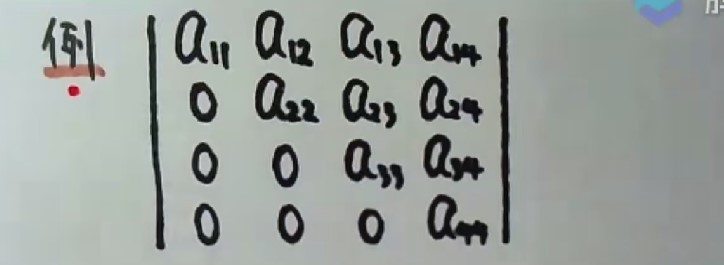 例 | a₁₁ a₁₂ a₁₃ a₁₄ |
| 0 a₂₂ a₂₃ a₂₄ |
| 0 0 a₃₃ a₃₄ |
| 0 0 0 a₄₄ |